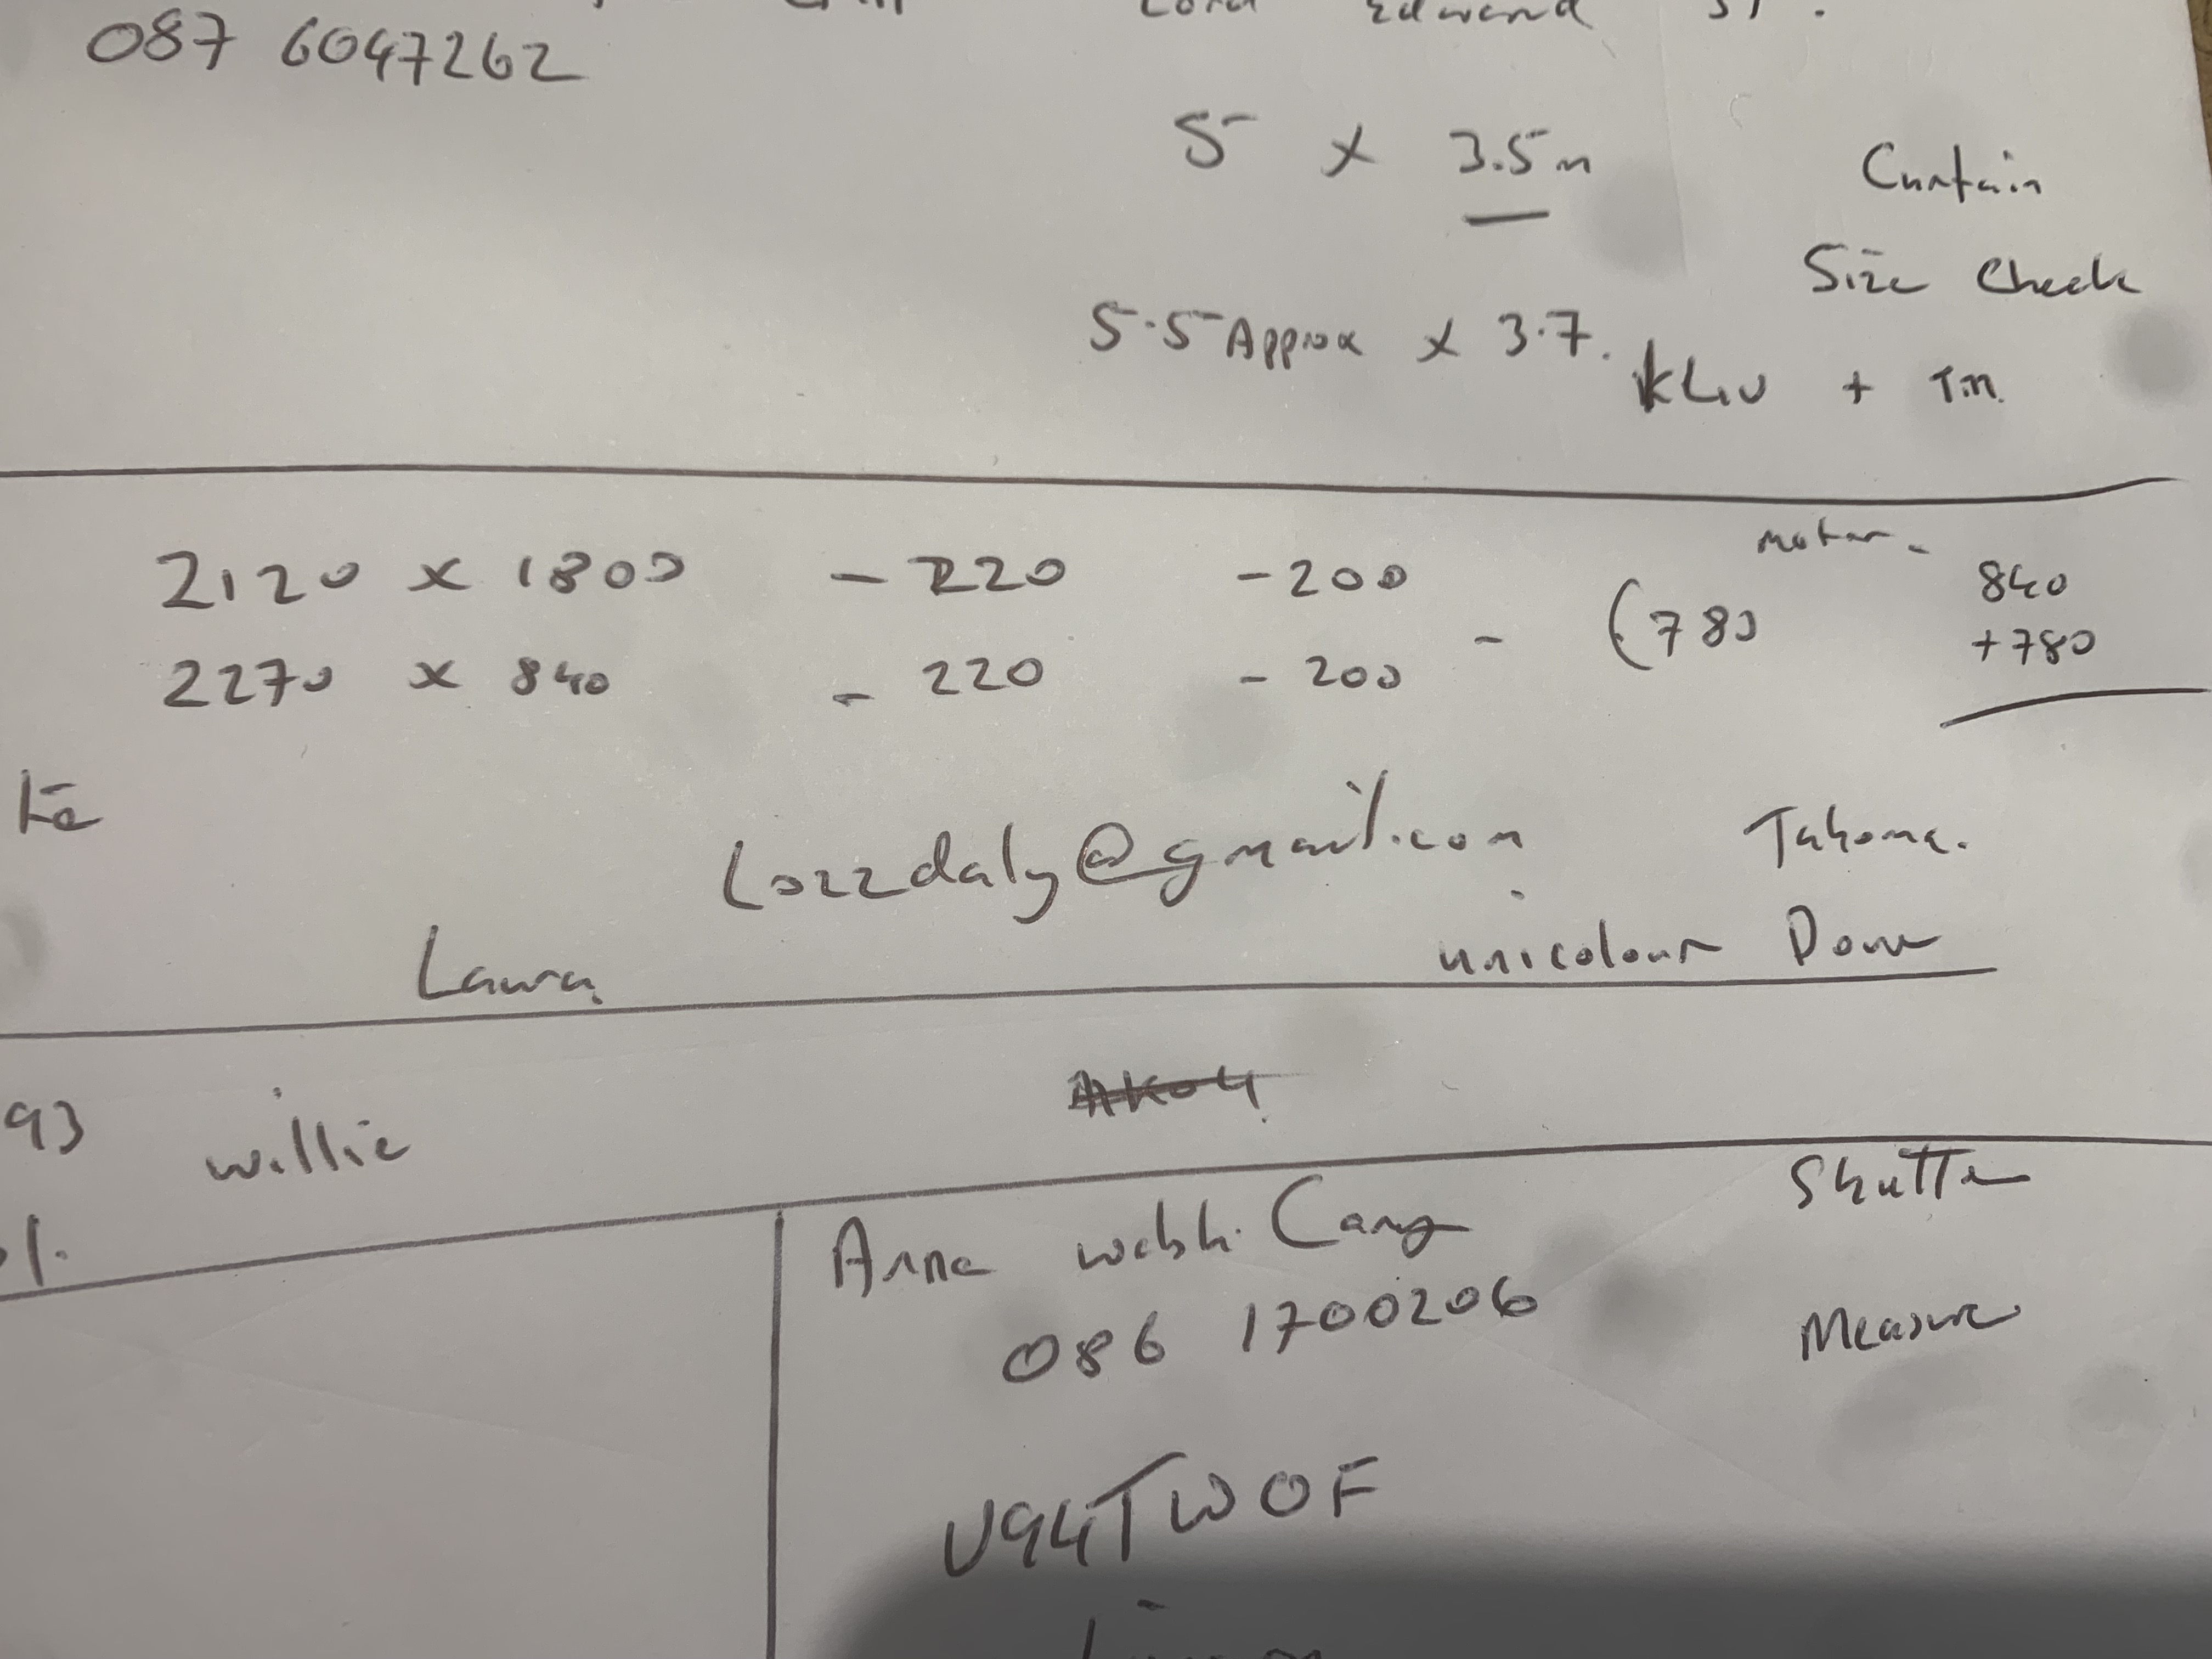 Lord Edward St.
087 6047262
5 x 3.5m Curtain
Size Check
5.5 Approx x 3.7.
KLIU + Tm.
motor -
2120 x 1800 - 220 - 200 840
- (780 +780
2270 x 840 - 220 - 200
Lozzdaly@gmail.com Tahoma.
Laura unicolour Dove
93 willie
AK04
Anna walsh Carey Shutter
086 1700206 Measure
V94TW0F